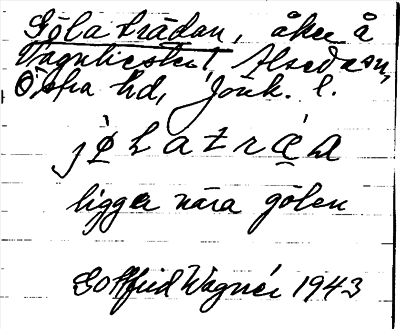 Göla trädan, åker å
Vagnhester, Alseda sn,
Östra hd, Jönk. l.
ligger nära gölen
Gottfrid Wagnér 1943